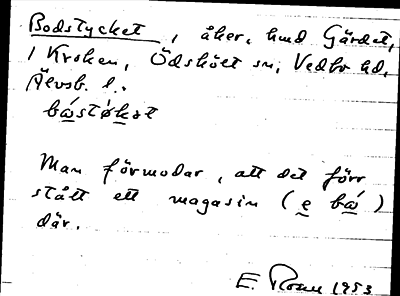 Bodstycket, åker, hmd Gärdet,
1 Kroken, Ödskölt sn, Vedbo hd,
Älvsb. l.
bástǿkət
Man förmodar, att det förr
stått ett magasin (e bá)
där.
E. 1953